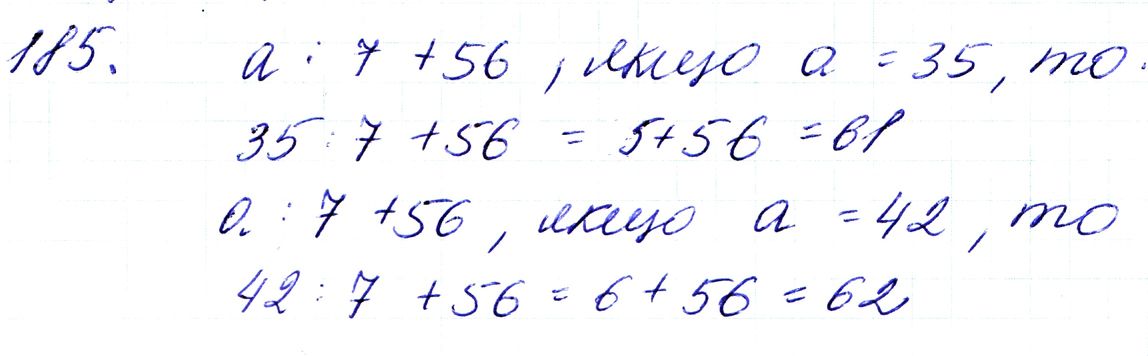 185. a : 7 + 56, якщо a = 35, то:
35 : 7 + 56 = 5 + 56 = 61
a : 7 + 56, якщо a = 42, то
42 : 7 + 56 = 6 + 56 = 62